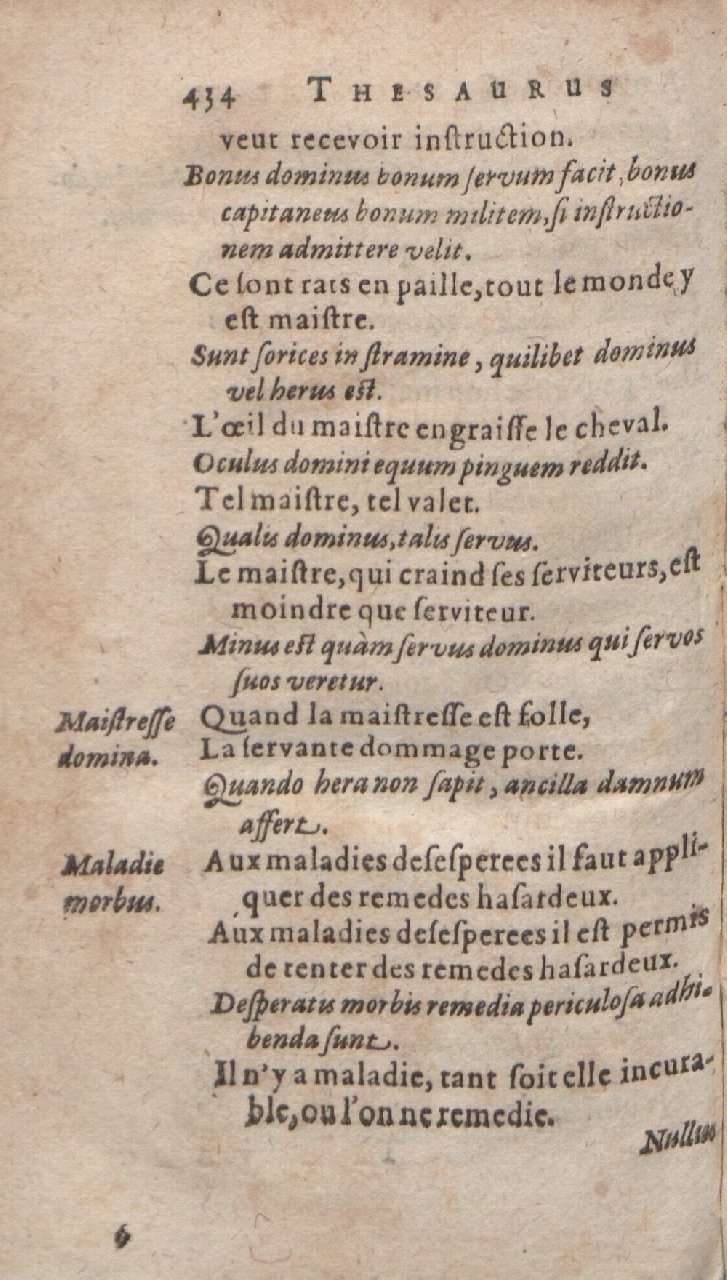 434 THESAURUS
veut recevoir inſtruction.
Bonus dominus bonum ſervum facit, bonus
capitaneus bonum militem, ſi inſtructio-
nem admittere velit.
Ce ſont rats en paille, tout le monde y
eſt maiſtre.
Sunt ſorices in ſtramine, quilibet dominus
vel herus eſt.
L'œil du maiſtre engraiſſe le cheval.
Oculus domini equum pinguem reddit.
Tel maiſtre, tel valet.
Qualis dominus, talis ſervus.
Le maiſtre, qui craind ſes ſerviteurs, eſt
moindre que ſerviteur.
Minus eſt quàm ſervus dominus qui ſervos
ſuos veretur.
Maiſtreſſe Quand la maiſtreſſe eſt folle,
domina. La ſervante dommage porte.
Quando hera non ſapit, ancilla damnum
affert.
Maladie Aux maladies deſeſperees il faut appli-
morbus. quer des remedes haſardeux.
Aux maladies deſeſperees il eſt permis
de tenter des remedes haſardeux.
Deſperatis morbis remedia periculoſa adhi-
benda ſunt.
Il n'y a maladie, tant ſoit elle incura-
ble, ou l'on ne remedie.
Nullus
6